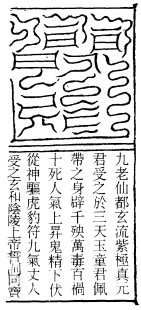 九老仙都玄流紫極真元
君受之於三天玉童君佩
帶之身辟千殃萬毒百禍
十死人氣上昇鬼精下伏
從神驅虎豹符九氣丈人
受之玄和陰陵上帝可寶